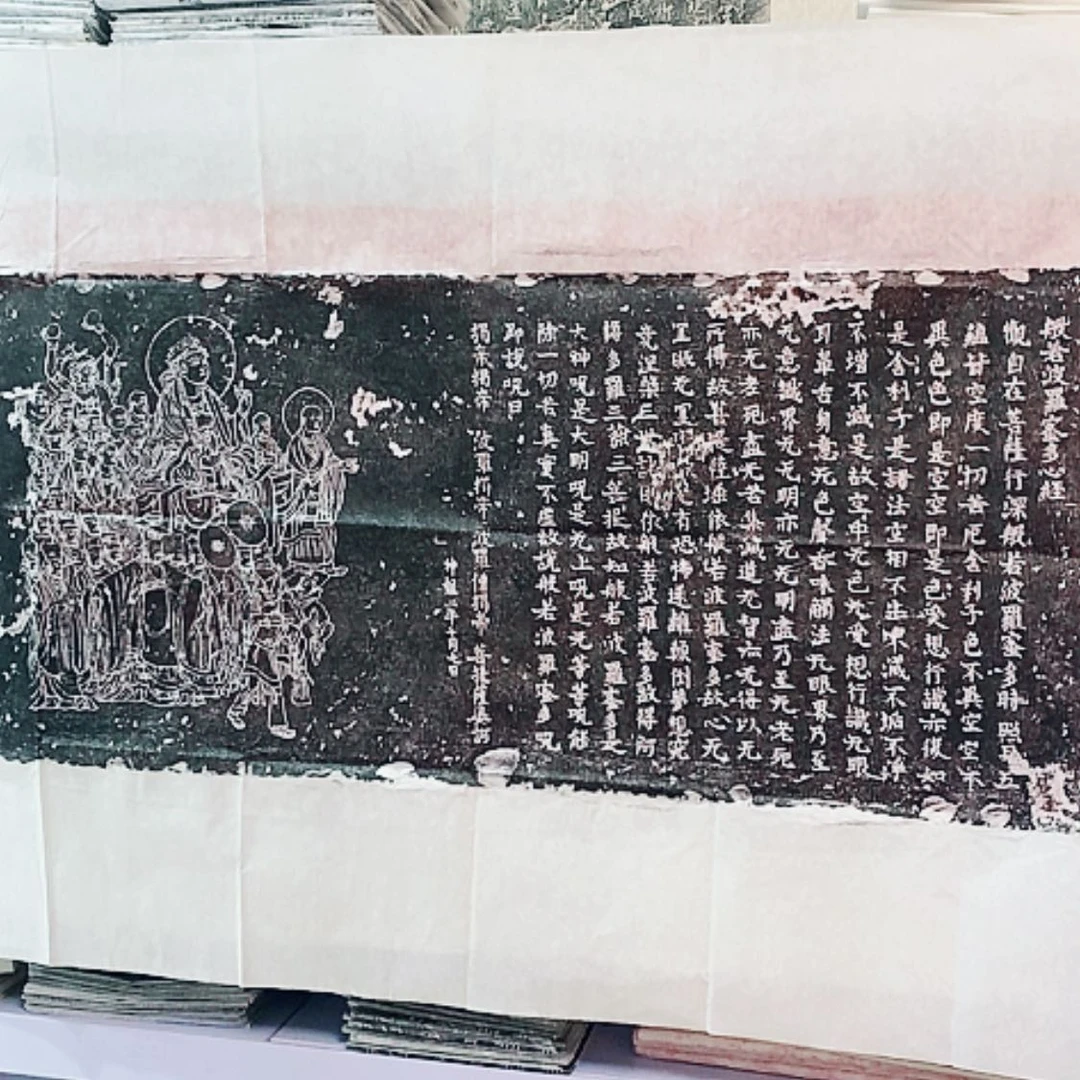 般若波羅蜜多心經
觀自在菩薩行深般若波羅蜜多時照見五
蘊皆空度一切苦厄舍利子色不異空空不
異色色即是空空即是色受想行識亦復如
是舍利子是諸法空相不生不滅不垢不淨
不增不減是故空中无色无受想行識无眼
耳鼻舌身意无色聲香味觸法无眼界乃至
无意識界无无明亦无无明盡乃至无老死
亦无老死盡无苦集滅道无智亦无得以无
所得故菩提薩埵依般若波羅蜜多故心无
罣礙无罣有恐怖遠離顛倒夢想究
竟涅槃三世諸佛依般若波羅蜜多故得阿
耨多羅三藐三菩提故知般若波羅蜜多是
大神呪是大明呪是无上呪是无等等呪能
除一切苦真實不虛故說般若波羅蜜多呪
即說呪曰
揭帝揭帝 波羅揭帝 波羅僧揭帝 菩提薩婆訶
神龍二年月七日